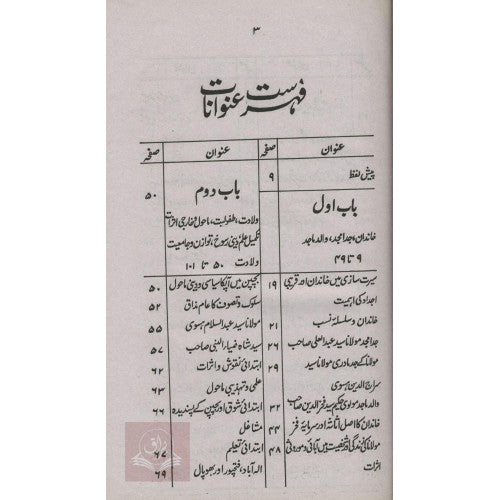 ۳
فہرست عنوانات
عنوان صفحہ
پیش لفظ ۹
باب اول
خاندان، جد امجد، والد ماجد
۹ تا ۴۹
سیرت سازی میں خاندان اور قریبی ۱۹
اجداد کی اہمیت
خاندان و سلسلۂ نسب ۲۱
جد امجد مولانا سید عبد العلی صاحب ۲۶
مولانا کے جد مادری مولانا سید ۲۹
سراج الدین ہسوی
والد ماجد مولوی حکیم سید فخر الدین صاحب ۳۲
خاندان کا اصل اثاثہ اور سرمایۂ فخر ۴۴
مولانا کی زندگی اور شخصیت میں آبائی و موروثی ۴۸
اثرات
عنوان صفحہ
باب دوم ۵۰
ولادت، طفولیت، ماحول خارجی اثرات
تکمیل علم دینی رسوخ، توازن و جامعیت
ولادت ۵۰ تا ۱۰۱
بچپن میں آپکا سیاسی و دینی ماحول ۵۰
سلوک و تصوف کا عام مذاق ۵۲
مولانا سید عبد السلام ہسوی ۵۵
سید شاہ ضیاء النبی صاحب ۵۷
ابتدائی نقوش و اثرات ۶۲
علمی و تہذیبی ماحول ۶۳
ابتدائی شوق اور بچپن کے پسندیدہ ۶۶
مشاغل
ابتدائی تعلیم ۶۷
الہ آباد، فتحپور اور بھوپال ۶۹